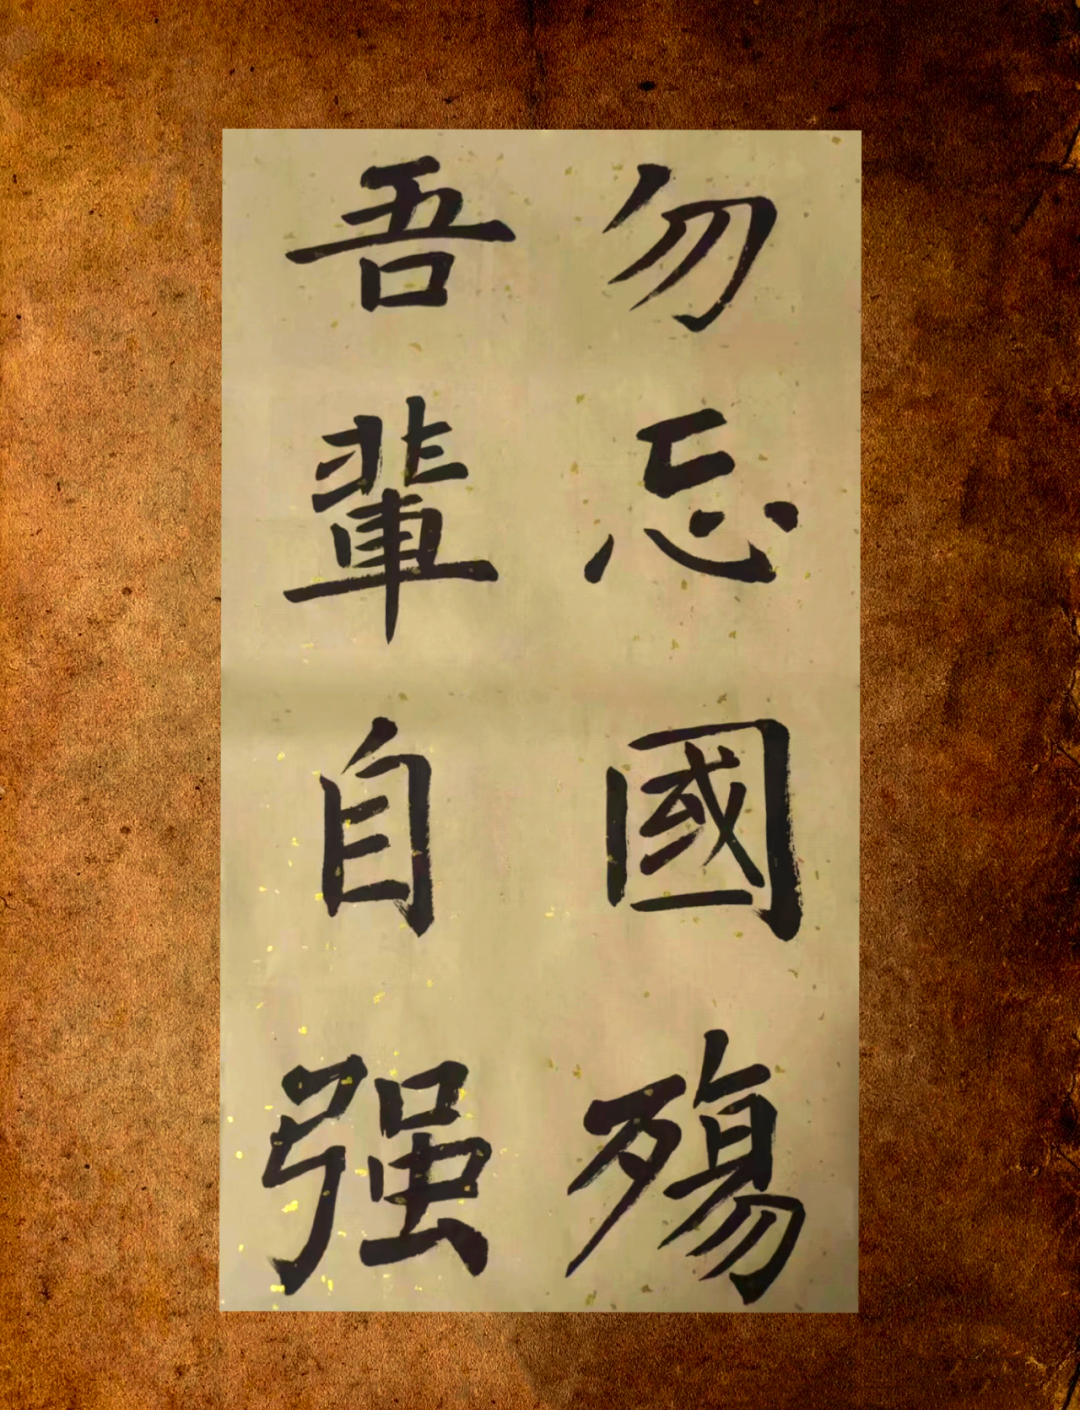 勿忘國殤
吾輩自强